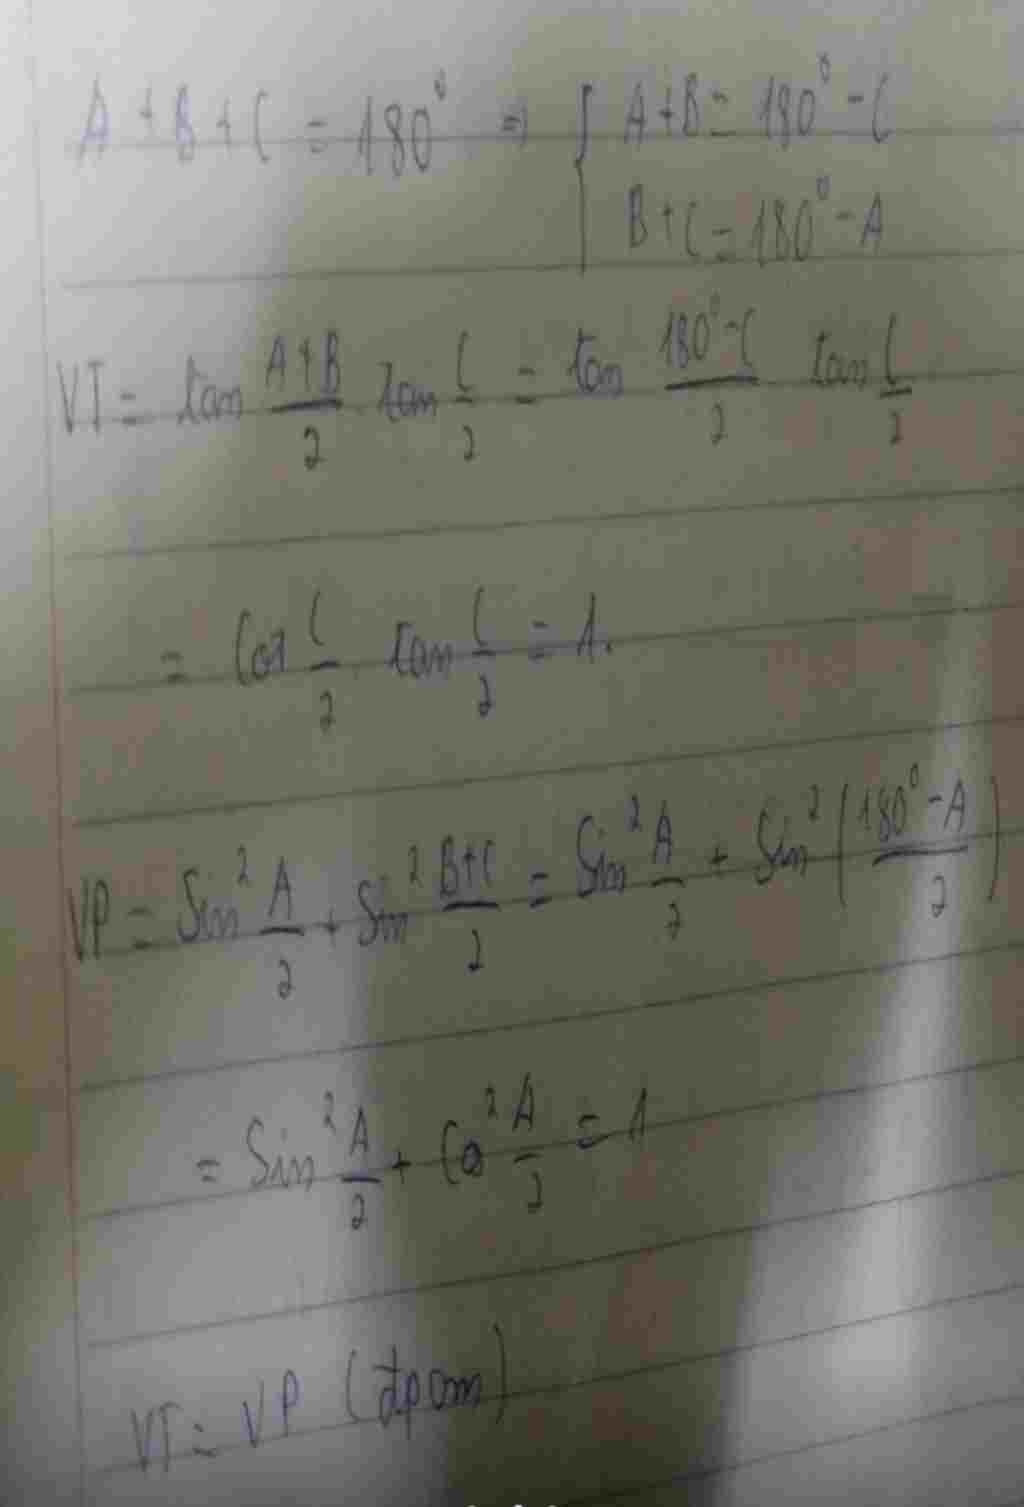 A + B + C = 180° ⇒ { A+B = 180° - C
B+C = 180° - A
VT = tan (A+B)/2 . tan C/2 = tan (180° - C)/2 tan C/2
= Cot C/2 . tan C/2 = 1.
VP = Sin² A/2 + Sin² (B+C)/2 = Sin² A/2 + Sin² ((180° - A)/2)
= Sin² A/2 + Cos² A/2 = 1
VT = VP (đpcm)